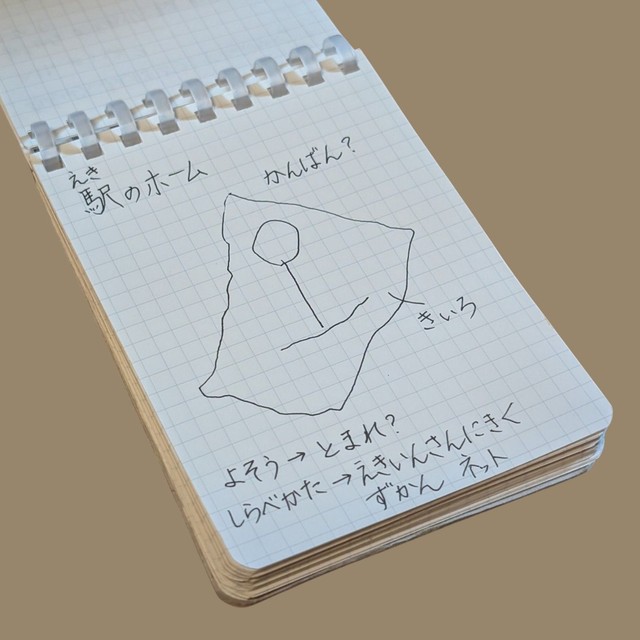 えき
駅のホーム
かんばん?
きいろ
よそう→とまれ?
しらべかた→えきいんさんにきく
ずかん ネット